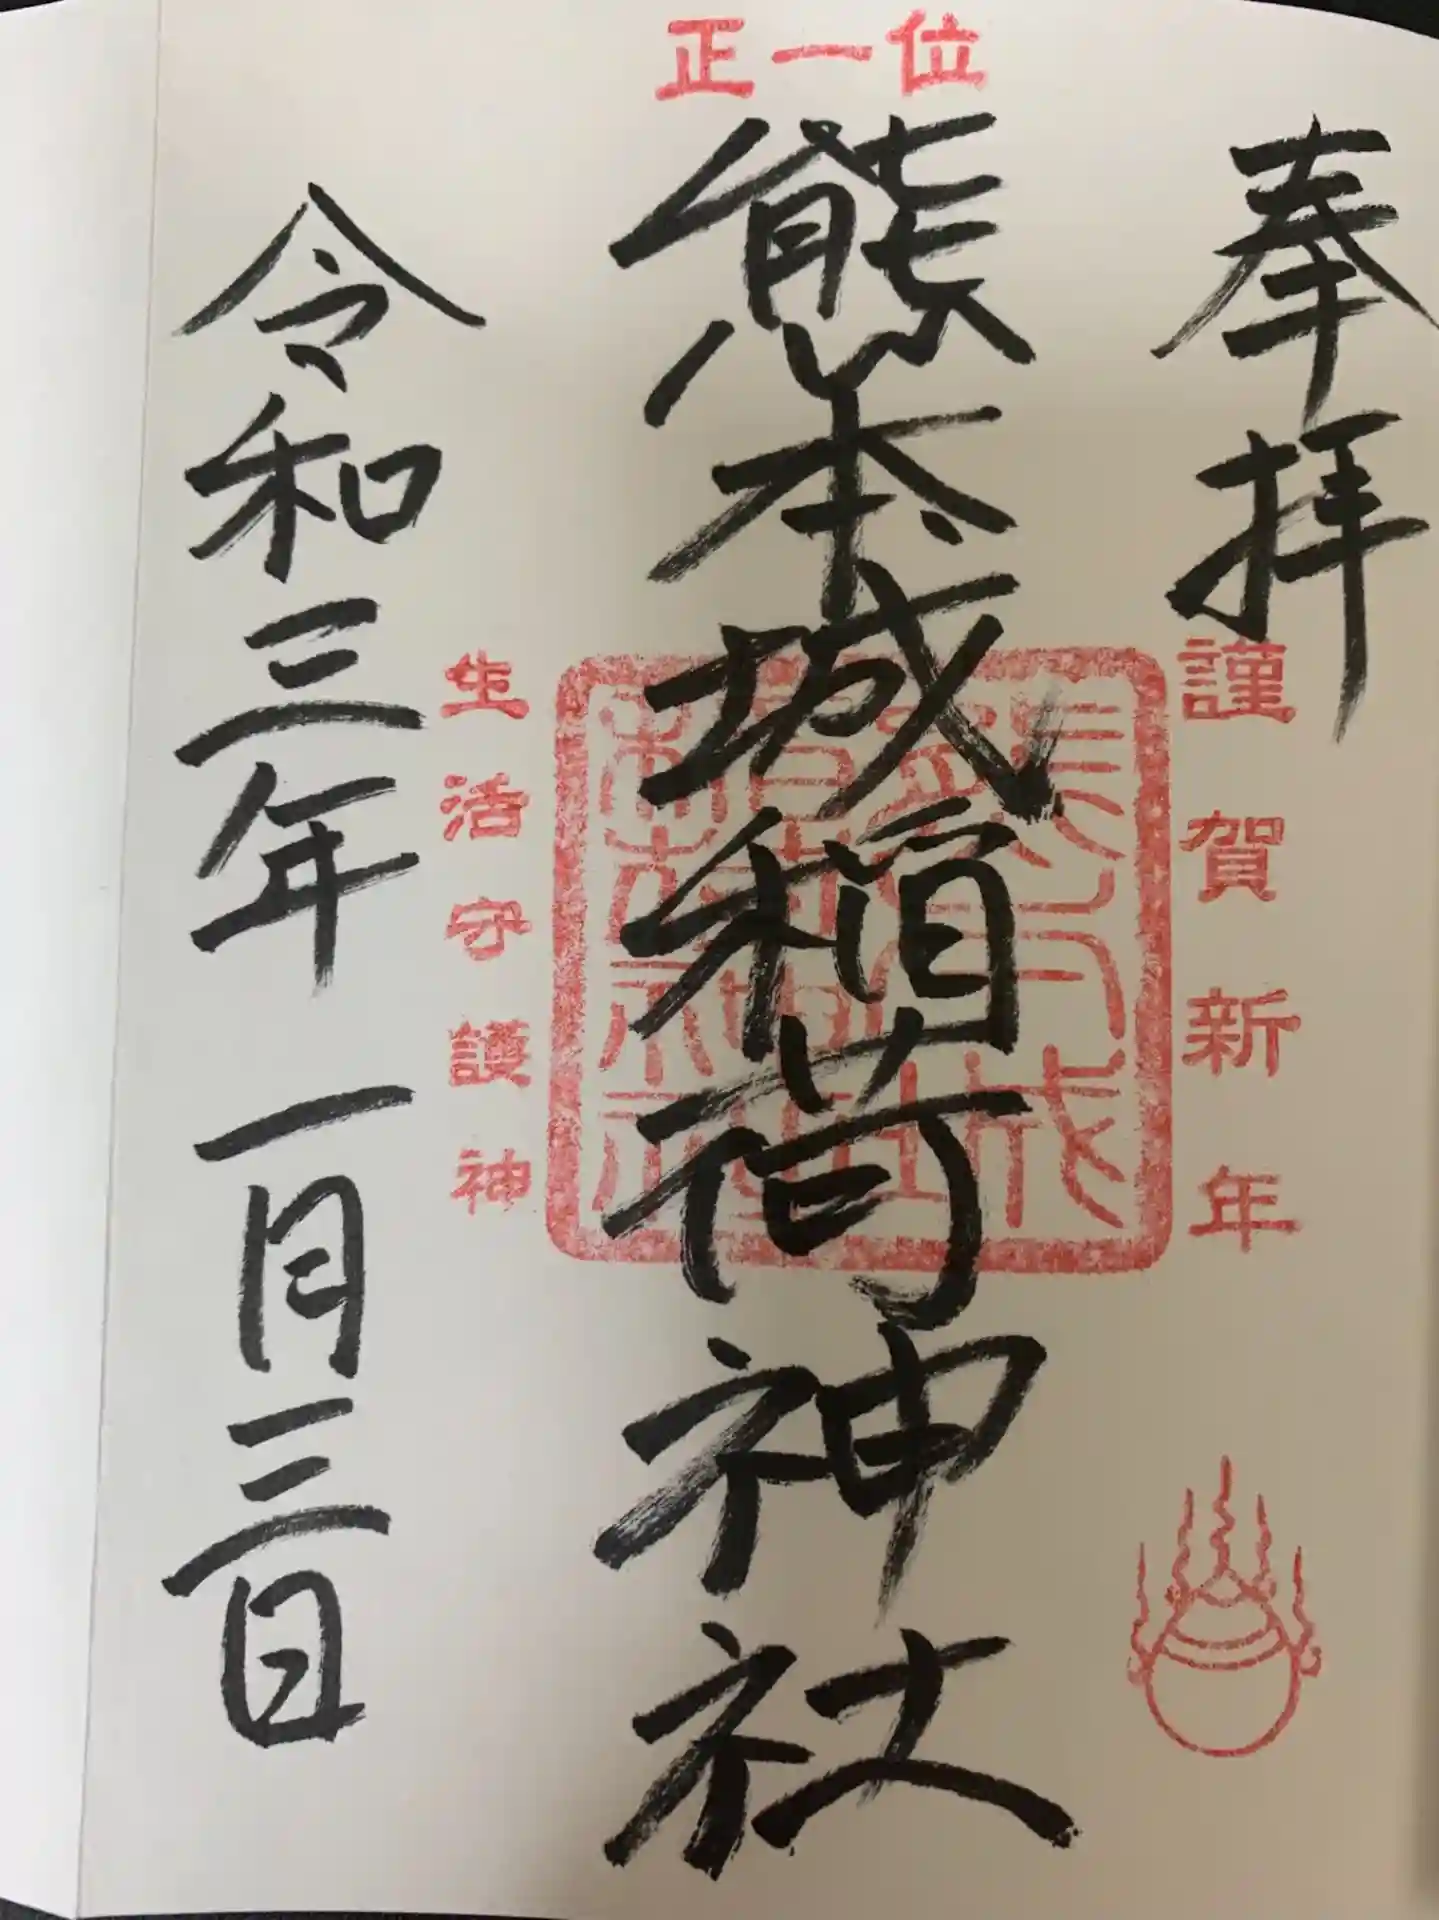 正一位
奉拝
謹賀新年
熊本城稲荷神社
熊本城
稲荷神社
生活守護神
令和三年一月三日